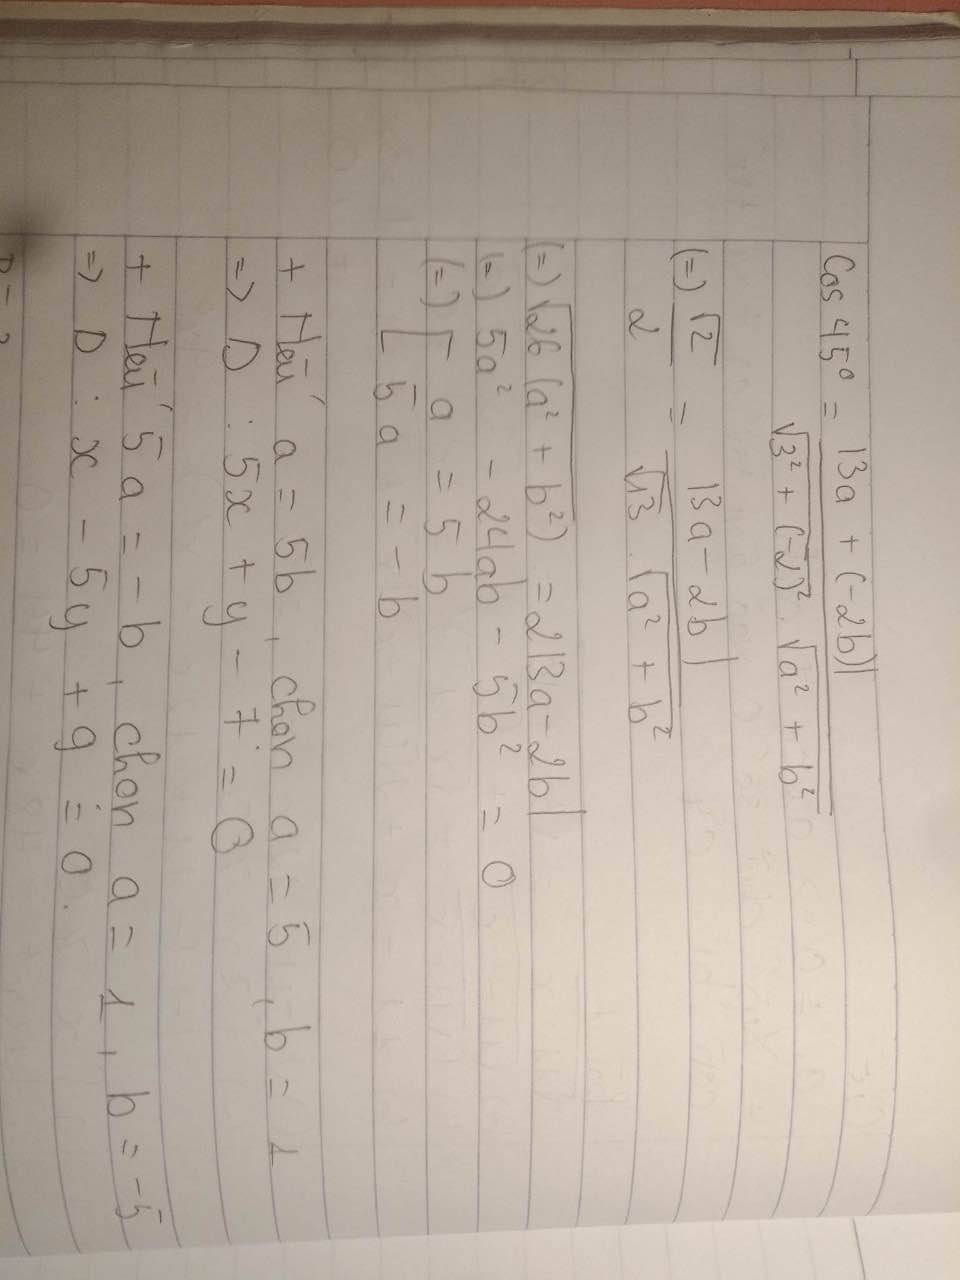 Cos 45° = |3a + (-2b)| / √3² + (-2)² . √a² + b²
(=) √2 / 2 = |3a - 2b| / √13 . √a² + b²
(=) √26 (a² + b²) = 2|3a - 2b|
(=) 5a² - 24ab - 5b² = 0
(=) [ a = 5b
[ 5a = -b
+ Nếu a = 5b, chọn a = 5, b = 1
=> D : 5x + y - 7 = 0
+ Nếu 5a = -b, chọn a = 1, b = -5
=> D : x - 5y + 9 = 0.